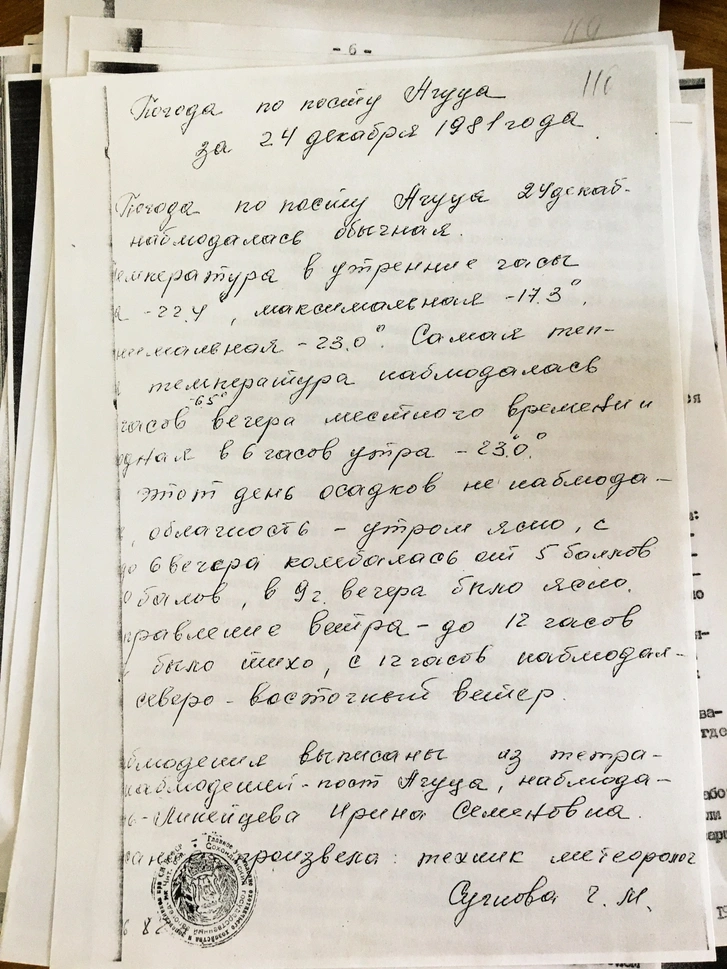 - 6 -
116
Погода по посту Агуца
за 24 декабря 1981 года
Погода по посту Агуца 24 декаб-
наблюдалась обычная.
емпература в утренние часы
-22.4°, максимальная -17.3°,
нимальная -23.0°. Самая теп-
температура наблюдалась
-6.5°
часов вечера местного времени и
одная в 6 часов утра -23.0°.
этот день осадков не наблюда-
, облачность - утром ясно, с
до 6 вечера колебалась от 5 баллов
0 балов, в 9 ч. вечера было ясно.
правление ветра - до 12 часов
было тихо, с 12 часов наблюдал-
северо-восточный ветер.
блюдения выписаны из тетра-
наблюдений - пост Агуца, наблюда-
Ирина Семеновна.
произвела: техник метеоролог
Г. М.